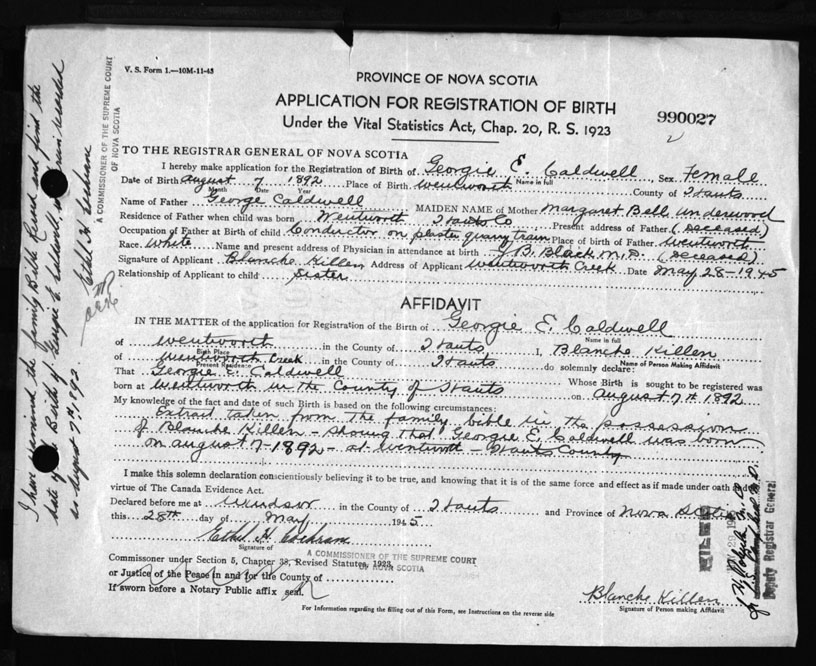 V. S. Form 1.—10M-11-43
PROVINCE OF NOVA SCOTIA
APPLICATION FOR REGISTRATION OF BIRTH
990027
Under the Vital Statistics Act, Chap. 20, R. S. 1923
TO THE REGISTRAR GENERAL OF NOVA SCOTIA
I hereby make application for the Registration of Birth of Georgie E. Caldwell, Sex Female
Name in full
Date of Birth August 7 1892 Place of Birth Wentworth County of Hants
Month Day Year
Name of Father George Caldwell MAIDEN NAME of Mother Margaret Bell Underwood
Residence of Father when child was born Wentworth Hants Co Present address of Father (deceased)
Occupation of Father at Birth of child Conductor on plaster quarry train Place of birth of Father Wentworth
Race White Name and present address of Physician in attendance at birth J. B. Black M.D. (deceased)
Signature of Applicant Blanche Killen Address of Applicant Wentworth Creek Date May 28-1945
Relationship of Applicant to child Sister
AFFIDAVIT
IN THE MATTER of the application for Registration of the Birth of Georgie E. Caldwell
Name in full
of Wentworth in the County of Hants I, Blanche Killen
Birth Place Name of Person Making Affidavit
of Wentworth Creek in the County of Hants do solemnly declare:
Present Residence
That Georgie E. Caldwell Whose Birth is sought to be registered was
born at Wentworth in the County of Hants on August 7th 1892
My knowledge of the fact and date of such Birth is based on the following circumstances:
Extract taken from the family bible in the possession
of Blanche Killen - showing that Georgie E. Caldwell was born
on August 7-1892 - at Wentworth - Hants County
I make this solemn declaration conscientiously believing it to be true, and knowing that it is of the same force and effect as if made under oath and by
virtue of The Canada Evidence Act.
Declared before me at Windsor in the County of Hants and Province of Nova Scotia
this 28th day of May 1945
Ethel H. Cochrane
Signature of
A COMMISSIONER OF THE SUPREME COURT
OF NOVA SCOTIA
Commissioner under Section 5, Chapter 38, Revised Statutes, 1923
or Justice of the Peace in and for the County of
If sworn before a Notary Public affix seal.
Blanche Killen
Signature of Person making Affidavit
For Information regarding the filling out of this Form, see Instructions on the reverse side
A COMMISSIONER OF THE SUPREME COURT
OF NOVA SCOTIA
Ethel H. Cochrane
I have examined the family Birth Record and find the
date of Birth of Georgie E. Caldwell, recorded
as August 7th, 1892
Deputy Registrar General